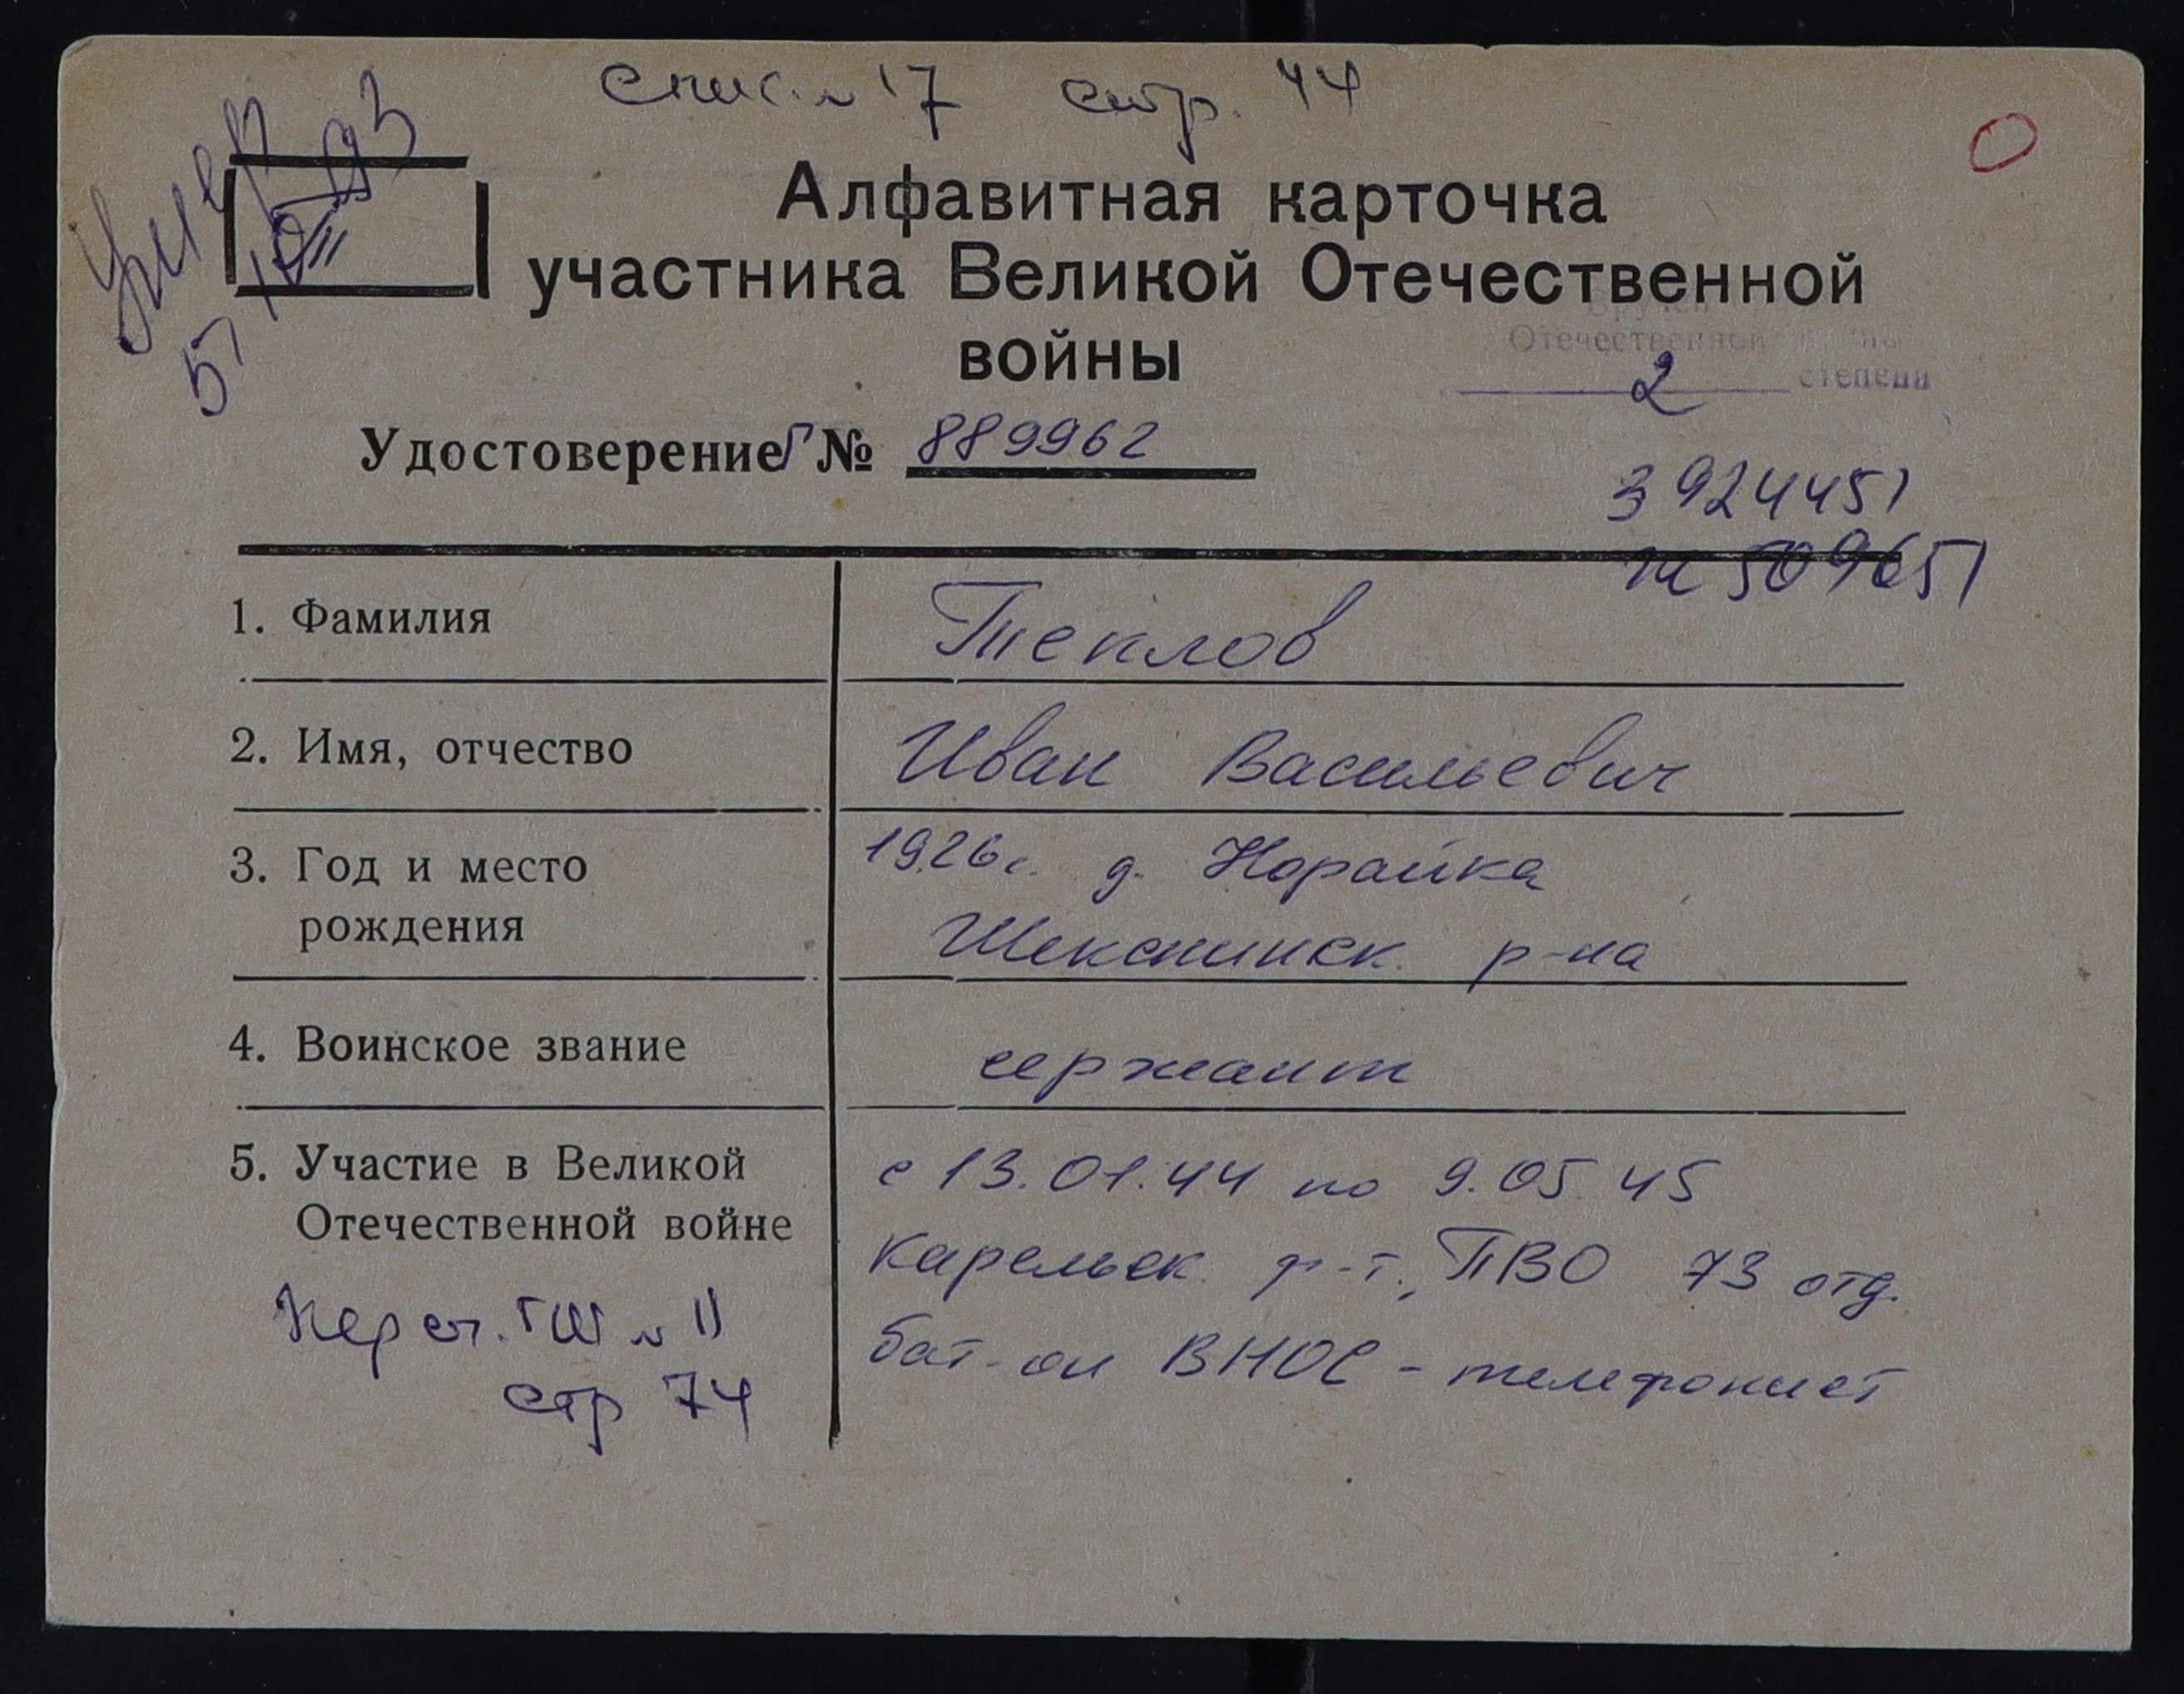 Спис. № 17 стр. 44
умер
5/XII 93
Алфавитная карточка
участника Великой Отечественной
войны
Вручен
Отечественной
2 степени
Удостоверение Г № 889962
3924451
м 509651
1. Фамилия Теплов
2. Имя, отчество Иван Васильевич
3. Год и место 1926 г. д. Норайка
рождения Шекснинск. р-на
4. Воинское звание сержант
5. Участие в Великой с 13.01.44 по 9.05.45
Отечественной войне Карельск. ф-т, ПВО 73 отд.
Переч. ГШ № 11 бат-он ВНОС - телефонист
стр 74